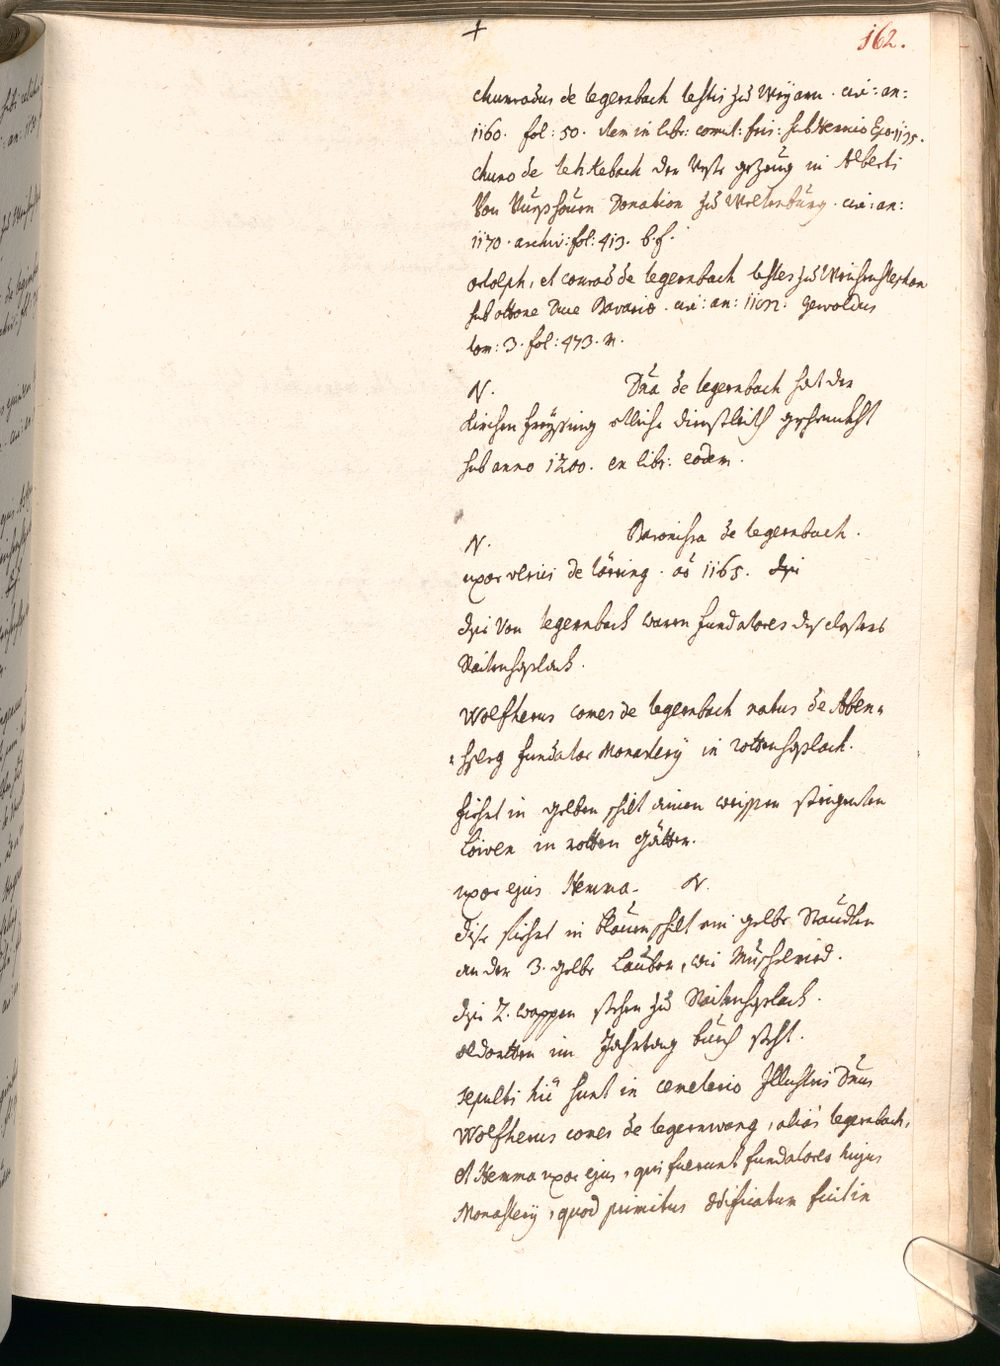 +
162.
Chunradus de legernbach testis zu Weyarn. circ: an:
1160. fol: 50. Item in libr: comut: fris: sub Hermio Epo. 1175.
Chuno de lehkebach der Veste gezeug in Alberti
Von Donation zu Weltenburg. circ: an:
1170. archiv: fol: 413. b. f.
Adolph, et conrad de legernbach testes zu Weichenstephan
sub ottone Duce Bavariae. circ: an: Gewoldus
tom: 3. fol: 473. n.
N. Dna de legernbach hat der
Kirchen Freysing etliche dienstleith geschenckht
sub anno 1200. ex libr: eodem.
N. Baronissa de legernbach.
uxor ulrici de törring. ao 1165.
dise Von legernbach waren fundatores des closters
Raitenhaslach.
Wolfherus comes de legernbach natus de Aben-
sperg fundator Monastery in rottenhaslach.
fiehrt in gelben schilt ainen weissen steigenten
Löwen in rotten Gätter.
uxor ejus Hemma. N.
dise fiehrt in Blauen schilt ein gelbe Staudten
an der 3. gelbe Lauber, wie
dise 2. wappen stehen zu Raitenhaslach.
aldorten im Jahrtag buech steht.
sepulti hic sunt in cemeterio Illustris Dnus
Wolfherus comes de legernwang, alias legernbach,
et Hemma uxor ejus, qui fuerunt fundatores hujus
Monastery, quod primitus ædificatum fuit in